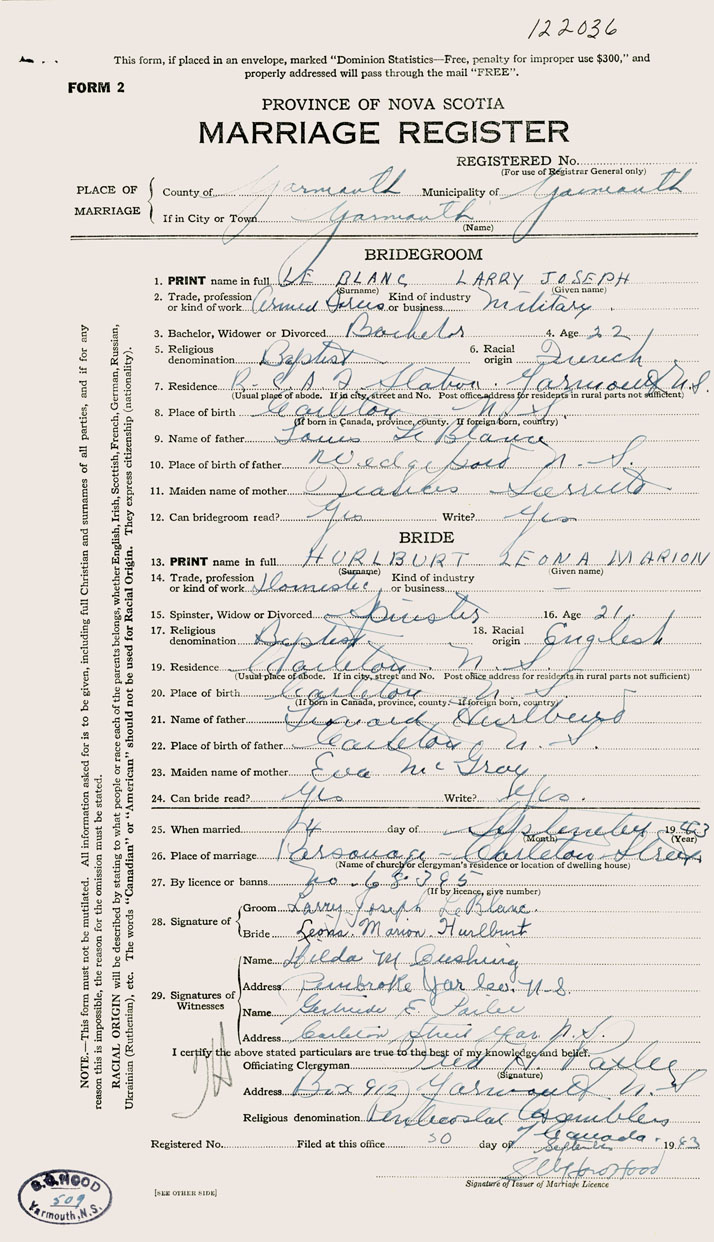 122036
This form, if placed in an envelope, marked "Dominion Statistics—Free, penalty for improper use $300," and
properly addressed will pass through the mail "FREE".
FORM 2
PROVINCE OF NOVA SCOTIA
MARRIAGE REGISTER
REGISTERED No.
(For use of Registrar General only)
PLACE OF MARRIAGE
County of Yarmouth Municipality of Yarmouth
If in City or Town Yarmouth
(Name)
BRIDEGROOM
1. PRINT name in full LE BLANC LARRY JOSEPH
(Surname) (Given name)
2. Trade, profession or kind of work Armed Forces Kind of industry or business Military
3. Bachelor, Widower or Divorced Bachelor 4. Age 22
5. Religious denomination Baptist 6. Racial origin French
7. Residence R.C.A.F. Station Yarmouth N.S.
(Usual place of abode. If in city, street and No. Post office address for residents in rural parts not sufficient)
8. Place of birth Carleton N.S.
(If born in Canada, province, county. If foreign born, country)
9. Name of father Louis LeBlanc
10. Place of birth of father Wedgeport N.S.
11. Maiden name of mother
12. Can bridegroom read? Yes Write? Yes
BRIDE
13. PRINT name in full HURLBURT LEONA MARION
(Surname) (Given name)
14. Trade, profession or kind of work Domestic Kind of industry or business —
15. Spinster, Widow or Divorced Spinster 16. Age 21
17. Religious denomination Baptist 18. Racial origin English
19. Residence Carleton N.S.
(Usual place of abode. If in city, street and No. Post office address for residents in rural parts not sufficient)
20. Place of birth Carleton N.S.
(If born in Canada, province, county. If foreign born, country)
21. Name of father Hurlburt
22. Place of birth of father Carleton N.S.
23. Maiden name of mother Eva McGray
24. Can bride read? Yes Write? Yes.
25. When married 14 day of September 1963
(Month) (Year)
26. Place of marriage Parsonage – Carleton Street
(Name of church or clergyman's residence or location of dwelling house)
27. By licence or banns no. 68395
(If by licence, give number)
28. Signature of
Groom Larry Joseph LeBlanc.
Bride Leona Marion Hurlburt
29. Signatures of Witnesses
Name Hilda M Cushing
Address Pembroke Yar Co. N.S.
Name Gertrude E.
Address Carleton Street Yar N.S.
I certify the above stated particulars are true to the best of my knowledge and belief.
Officiating Clergyman
(Signature)
Address Box 912 Yarmouth N.S
Religious denomination Pentecostal Assemblies of Canada.
Registered No. Filed at this office 30 day of September 1963
Hood
Signature of Issuer of Marriage Licence
[SEE OTHER SIDE]
NOTE.—This form must not be mutilated. All information asked for is to be given, including full Christian and surnames of all parties, and if for any
reason this is impossible, the reason for the omission must be stated.
RACIAL ORIGIN will be described by stating to what people or race each of the parents belongs, whether English, Irish, Scottish, French, German, Russian,
Ukrainian (Ruthenian), etc. The words "Canadian" or "American" should not be used for Racial Origin. They express citizenship (nationality).
HOOD
509
Yarmouth, N.S.